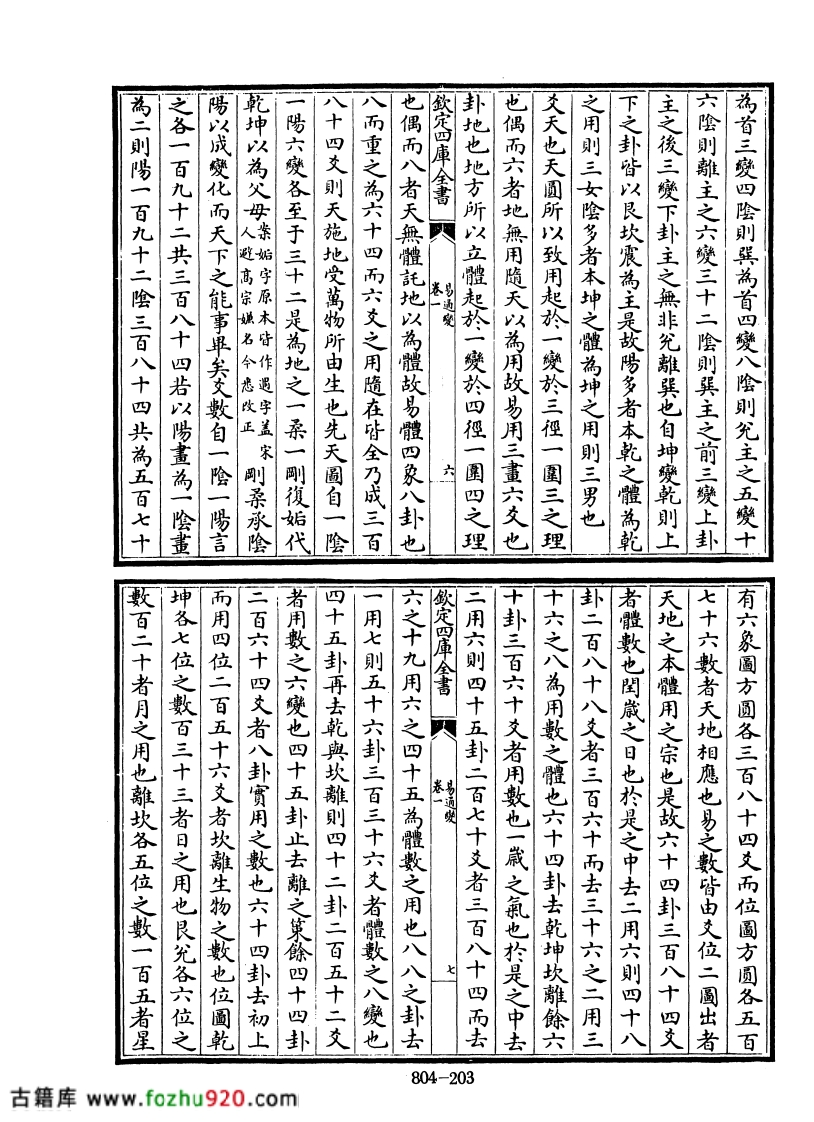 為首三變四陰則巽為首四變八陰則兊主之五變十
六陰則離主之六變三十二陰則巽主之前三變上卦
主之後三變下卦主之無非兊離巽也自坤變乾則上
下之卦皆以艮坎震為主是故陽多者本乾之體為乾
之用則三女陰多者本坤之體為坤之用則三男也
爻天也天圓所以致用起於一變於三徑一圍三之理
也偶而六者地無用隨天以為用故易用三畫六爻也
卦地也地方所以立體起於一變於四徑一圍四之理
欽定四庫全書
易通變
卷一
六
也偶而八者天無體託地以為體故易體四象八卦也
八而重之為六十四而六爻之用隨在皆全乃成三百
八十四爻則天施地受萬物所由生也先天圖自一陰
一陽六變各至于三十二是為地之一柔一剛復姤代
乾坤以為父母案姤字原本皆作遇字盖宋人避髙宗嫌名今悉改正剛柔承陰
陽以成變化而天下之能事畢矣爻數自一陰一陽言
之各一百九十二共三百八十四若以陽畫為一陰畫
為二則陽一百九十二陰三百八十四共為五百七十
有六象圖方圓各三百八十四爻而位圖方圓各五百
七十六數者天地相應也易之數皆由爻位二圖出者
天地之本體用之宗也是故六十四卦三百八十四爻
者體數也閏歲之日也於是之中去二用六則四十八
卦二百八十八爻者三百六十而去三十六之二用三
十六之八為用數之體也六十四卦去乾坤坎離餘六
十卦三百六十爻者用數也一歲之氣也於是之中去
二用六則四十五卦二百七十爻者三百八十四而去
欽定四庫全書
易通變
卷一
七
六之十九用六之四十五為體數之用也八八之卦去
一用七則五十六卦三百三十六爻者體數之八變也
四十五卦再去乾與坎離則四十二卦二百五十二爻
者用數之六變也四十五卦止去離之策餘四十四卦
二百六十四爻者八卦實用之數也六十四卦去初上
而用四位二百五十六爻者坎離生物之數也位圖乾
坤各七位之數百三十三者日之用也艮兊各六位之
數百二十者月之用也離坎各五位之數一百五者星
804-203
古籍库 www.fozhu920.com